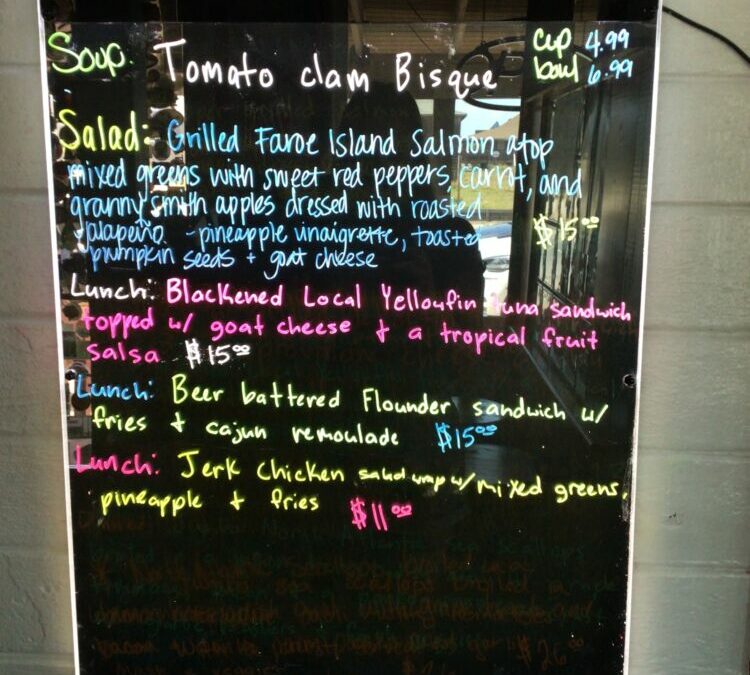 Soup. Tomato clam Bisque cup 4.99
bowl 6.99
Salad: Grilled Faroe Island Salmon atop
mixed greens with sweet red peppers, carrot, and
granny smith apples dressed with roasted
jalapeño - pineapple vinaigrette, toasted $15.00
pumpkin seeds + goat cheese
Lunch: Blackened Local Yellowfin tuna sandwich
topped w/ goat cheese + a tropical fruit
salsa $15.00
Lunch: Beer battered Flounder sandwich w/
fries + cajun remoulade $15.00
Lunch: Jerk Chicken salad wrap w/ mixed greens,
pineapple + fries $11.00